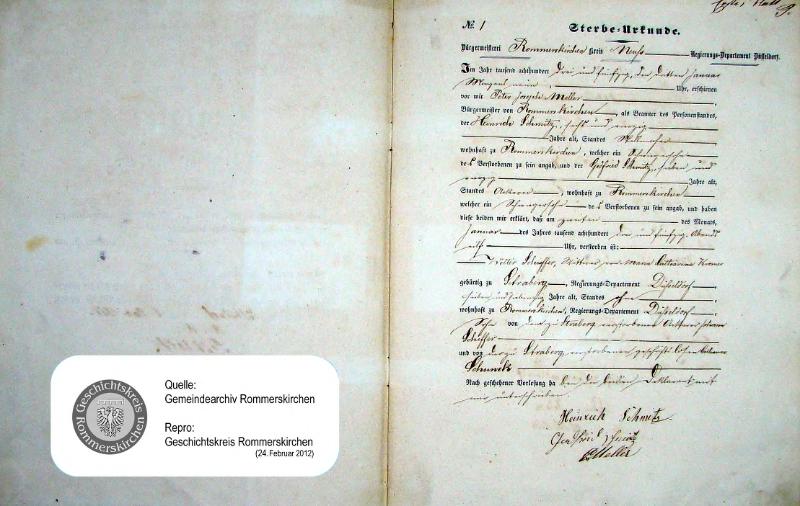 № 1
Sterbe-Urkunde.
Bürgermeisterei Rommerskirchen Kreis Neuss Regierungs-Departement Düsseldorf.
Im Jahr tausend achthundert drei und fünfzig, den dritten Januar
Morgens neun Uhr, erschienen
vor mir Peter Joseph Moller
Bürgermeister von Rommerskirchen, als Beamter des Personenstandes,
der Heinrich Schmitz, sechs und
Jahre alt, Standes
wohnhaft zu Rommerskirchen, welcher ein Schwiegersohn
des Verstorbenen zu sein angab, und der Gotfried Schmitz, sieben und
Jahre alt,
Standes Ackerer, wohnhaft zu Rommerskirchen
welcher ein Schwiegersohn des Verstorbenen zu sein angab, und haben
diese beiden mir erklärt, daß am zweiten des Monats
Januar des Jahres tausend achthundert drei und fünfzig Abends
Uhr, verstorben ist:
Schaffer, Wittwer von Maria Catharina
gebürtig zu Straberg, Regierungs-Departement Düsseldorf
sieben und siebenzig Jahre alt, Standes ohne
wohnhaft zu Rommerskirchen, Regierungs-Departement Düsseldorf
Sohn von der zu Straberg verstorbenen
Schaffer
und von der zu Straberg verstorbenen
Nach geschehener Vorlesung ha ben die beiden Deklaranten mit
mir unterschrieben.
Heinrich Schmitz
Moller
Geschichtskreis Rommerskirchen
Quelle:
Gemeindearchiv Rommerskirchen
Repro:
Geschichtskreis Rommerskirchen
(24. Februar 2012)